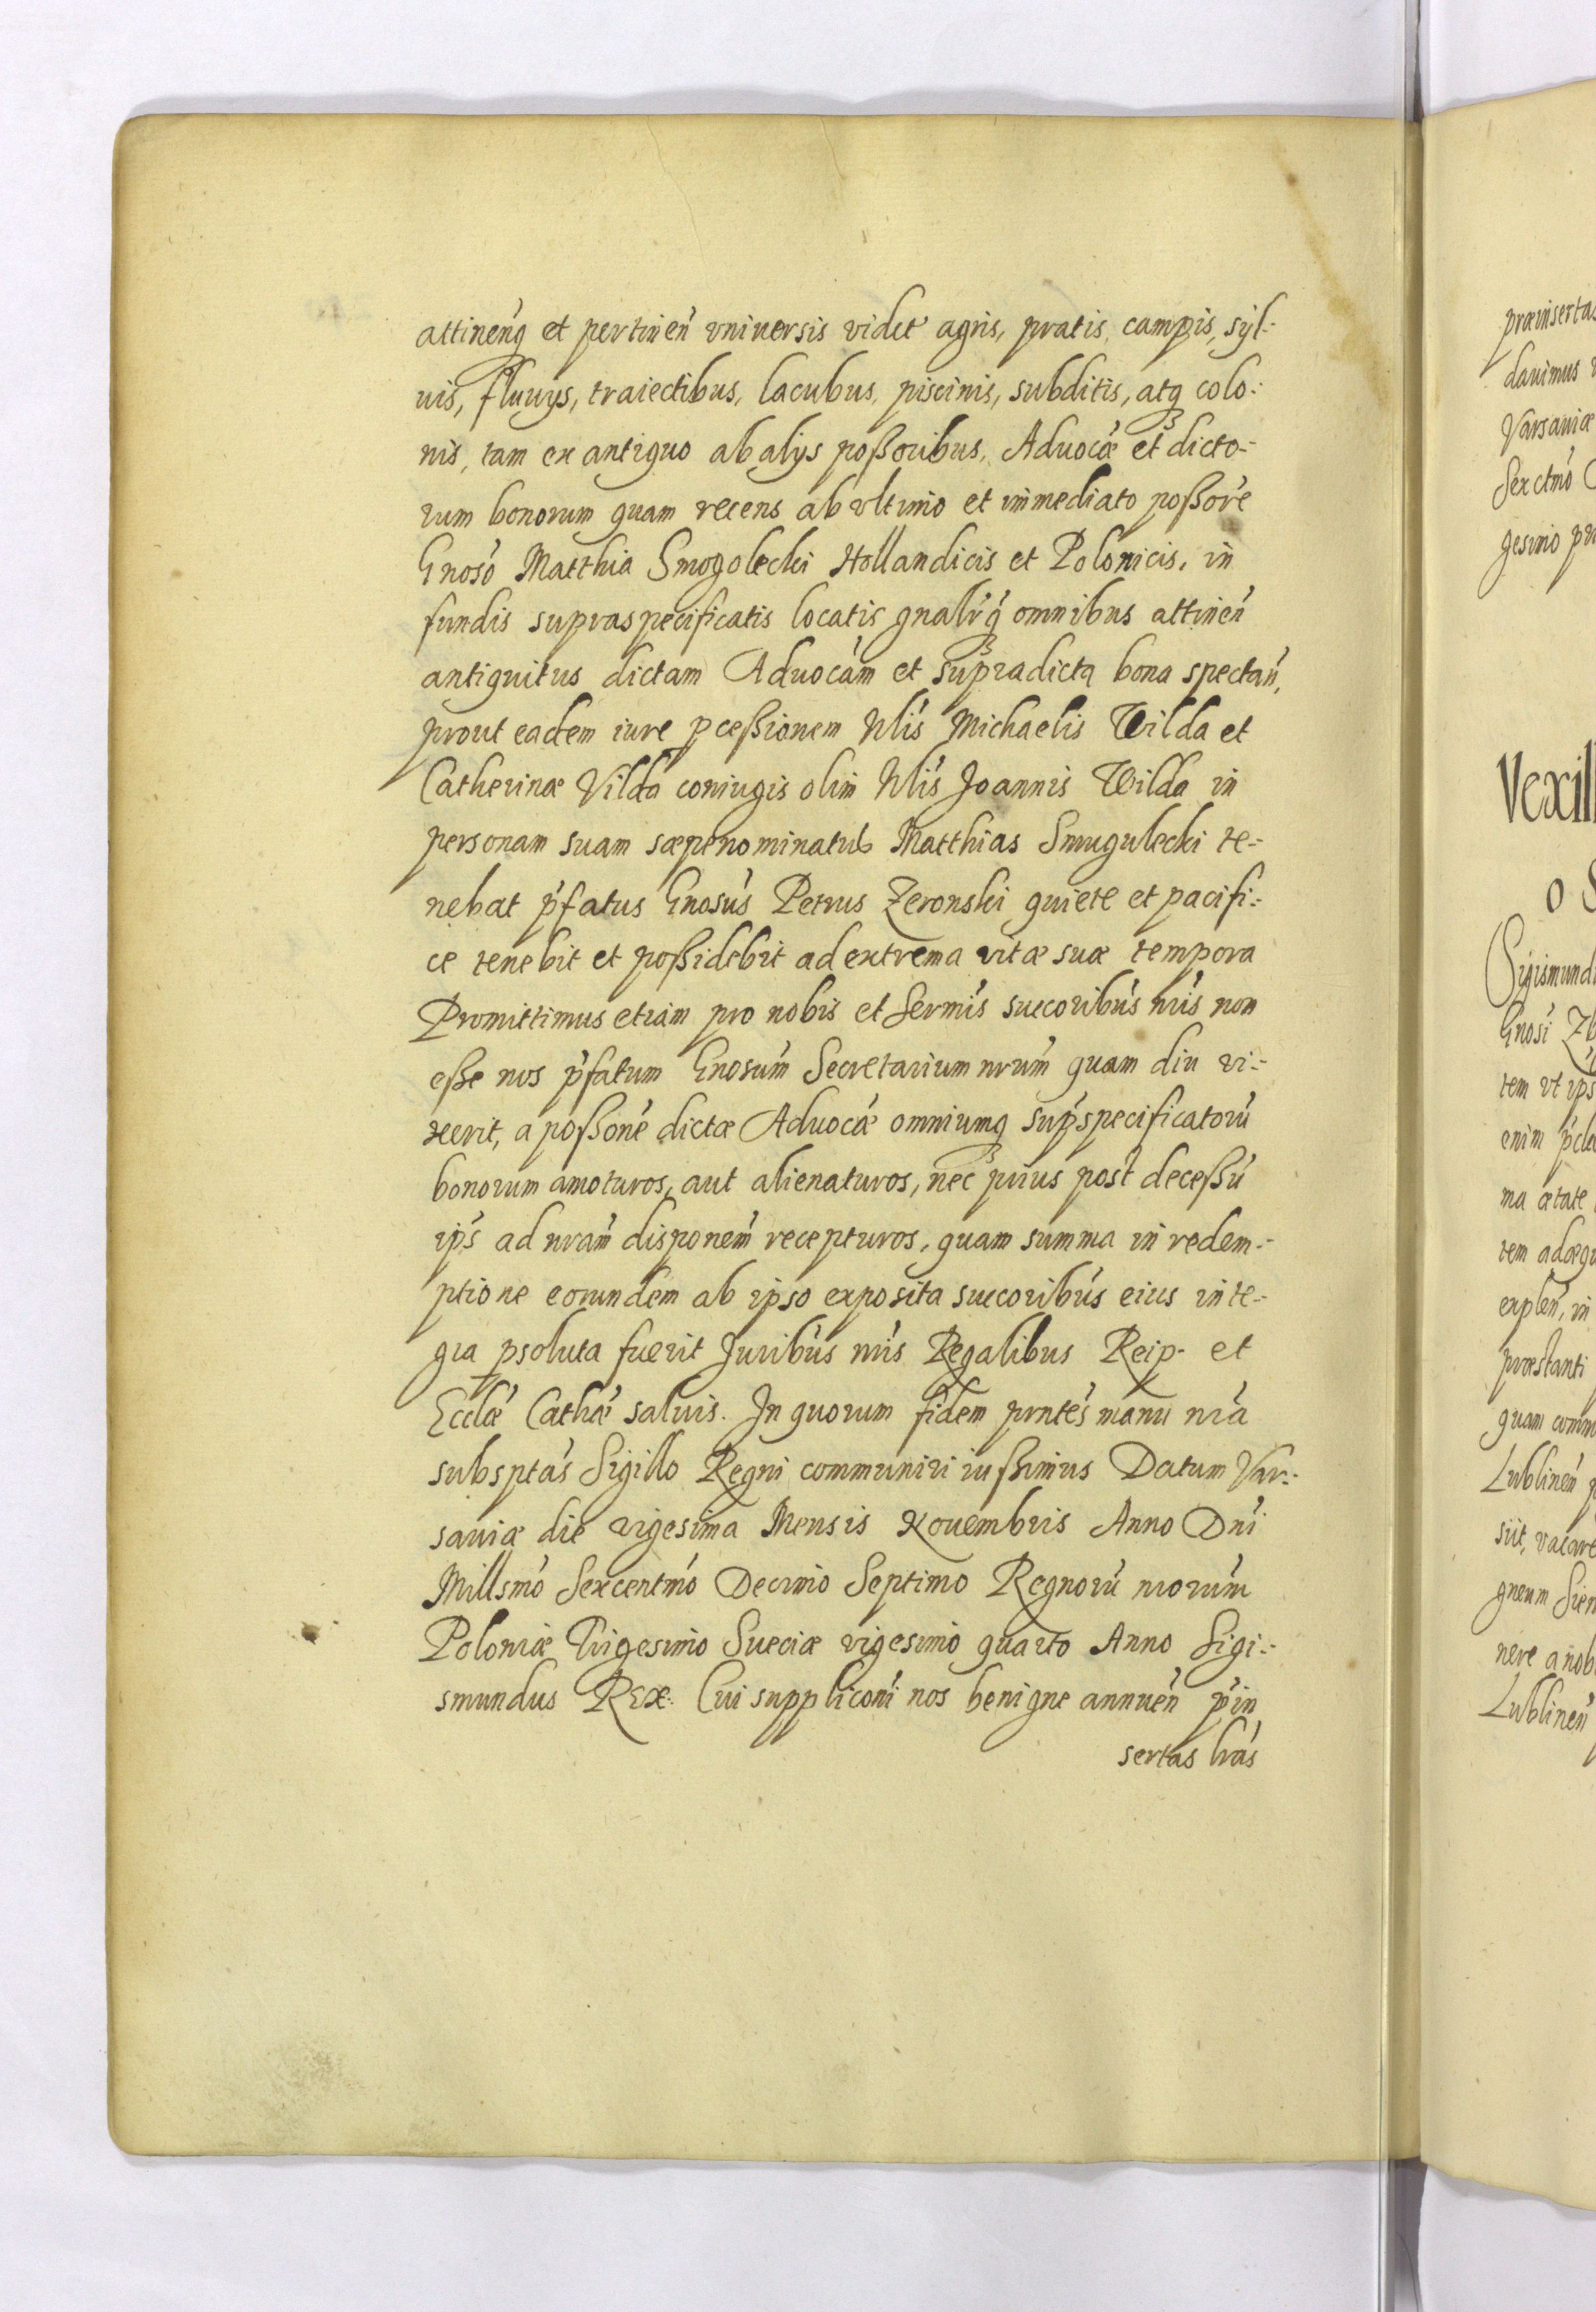 attinenq et pertinen vniuersis videt agris, pratis, campis, syl-
uis, fluuys, traiectibus, lacubus, piscinis, subditis, atq colo-
nis, tam ex antiquo ab alijs poßoribus, Aduocæ et dicto-
rum bonorum quam recens ab vltimo et immediato poßore
Gnoso Matthia Smogolecki Hollandicis et Polonicis, in
fundis supraspecificatis locatis gnalrq omnibus attinen
antiquitus dictam Aduocam et supradicta bona spectan,
prout eadem iure p ceßionem Nlis Michaelis Wilda et
Catherinæ Vilda coniugis olim Nlis Joannis Wilda in
personam suam sæpenominatus Matthias Smugulecki te-
nebat pfatus Gnosus Petrus Zeronski quiete et pacifi-
ce tenebit et poßidebit ad extrema vitæ suæ tempora
Promittimus etiam pro nobis et Sermis succoribus nris non
eße nos pfatum Gnosum Secretarium nrum quam diu vi-
xerit, a poßone dictæ Aduocæ omniumq supspecificatoru
bonorum amoturos, aut alienaturos, nec prius post deceßu
ips ad nram disponem recepturos, quam summa in redem-
ptione eorundem ab ipso exposita succoribus eius inte-
gra psoluta fuerit Juribus nris Regalibus Reip. et
Ecclæ Cathæ saluis. In quorum fidem prntes manu nra
subsptas Sigillo Regni communiri iußimus Datum Var-
sauiæ die vigesima Mensis Nouembris Anno Dni
Millsmo Sexcentmo Decimo Septimo Regnoru nrorum
Poloniæ Trigesimo Sueciæ vigesimo quarto Anno Sigi-
smundus Rex. Cui suppliconi nos benigne annuen pin
sertas lras
præinsertas
dauimus
Varsauiæ
Sexctmo
gesimo pri
Vexill
o S
Sigismund
Gnosi Zb
tem vt ips
enim pcla
ma ætate
tem adæqu
explen, in
præstanti
quam comm
Lublinen p
sijt, vacare
gneum Sien
nere a nobi
Lublinen